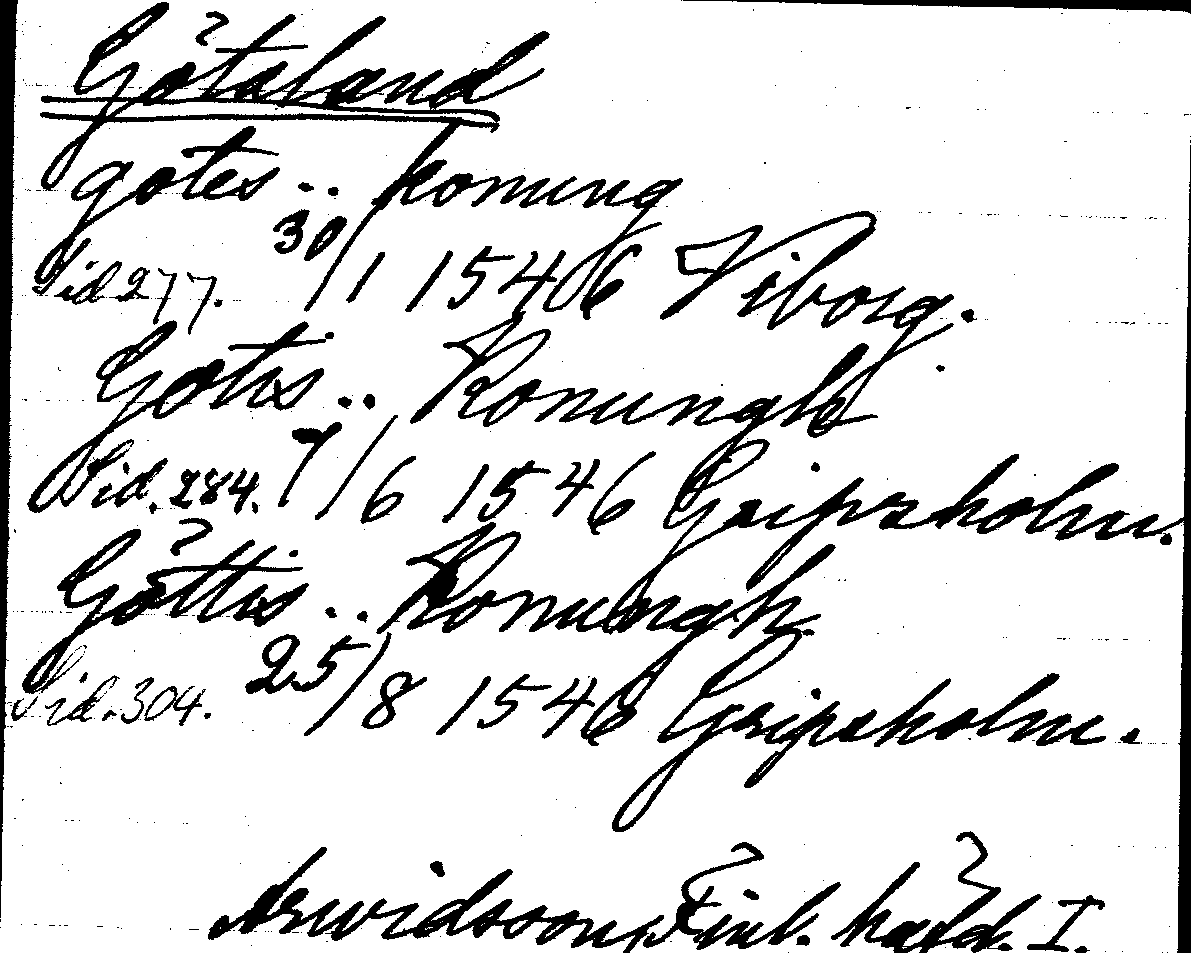 Götaland
gotes .. konung
Sid 277. 30/1 1546 Viborg.
Gotis .. Konungh
Sid. 284. 7/6 1546 Gripsholm.
Göttis .. Konungh.
Sid. 304. 25/8 1546 Gripsholm.
Arwidsson, Finl. hävd. I.